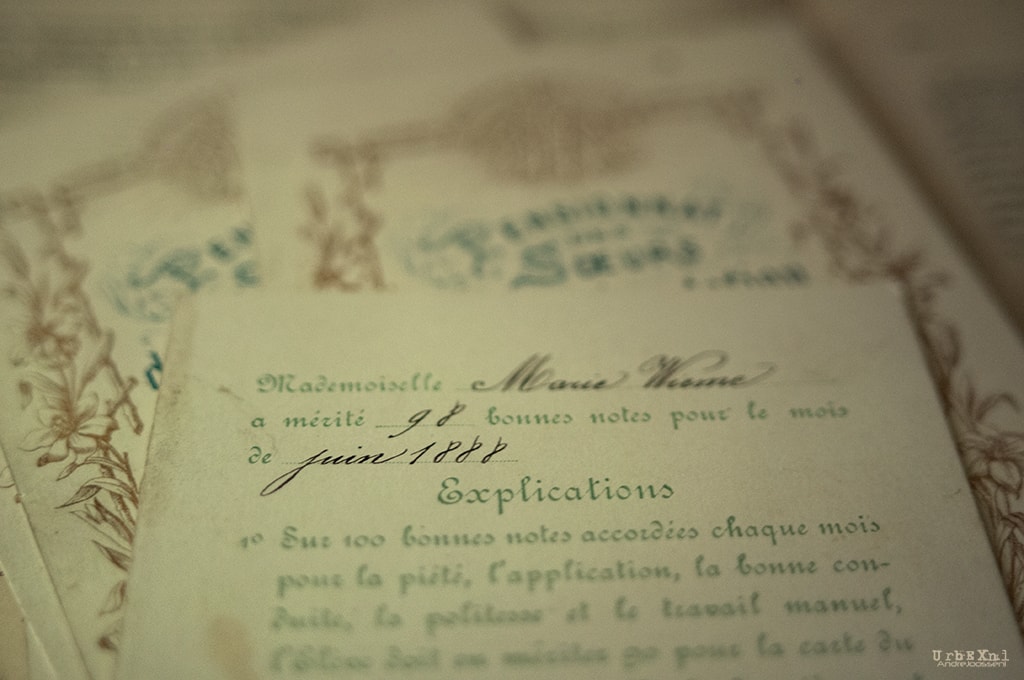 Pensionnat
des
Sœurs
Mademoiselle Marie Wieme
a mérité 98 bonnes notes pour le mois
de juin 1888
Explications
1º Sur 100 bonnes notes accordées chaque mois
pour la piété, l'application, la bonne con-
duite, la politesse et le travail manuel,
l'Élève doit en mériter 90 pour la carte du
UrbEXnl
AndreJoosse.nl